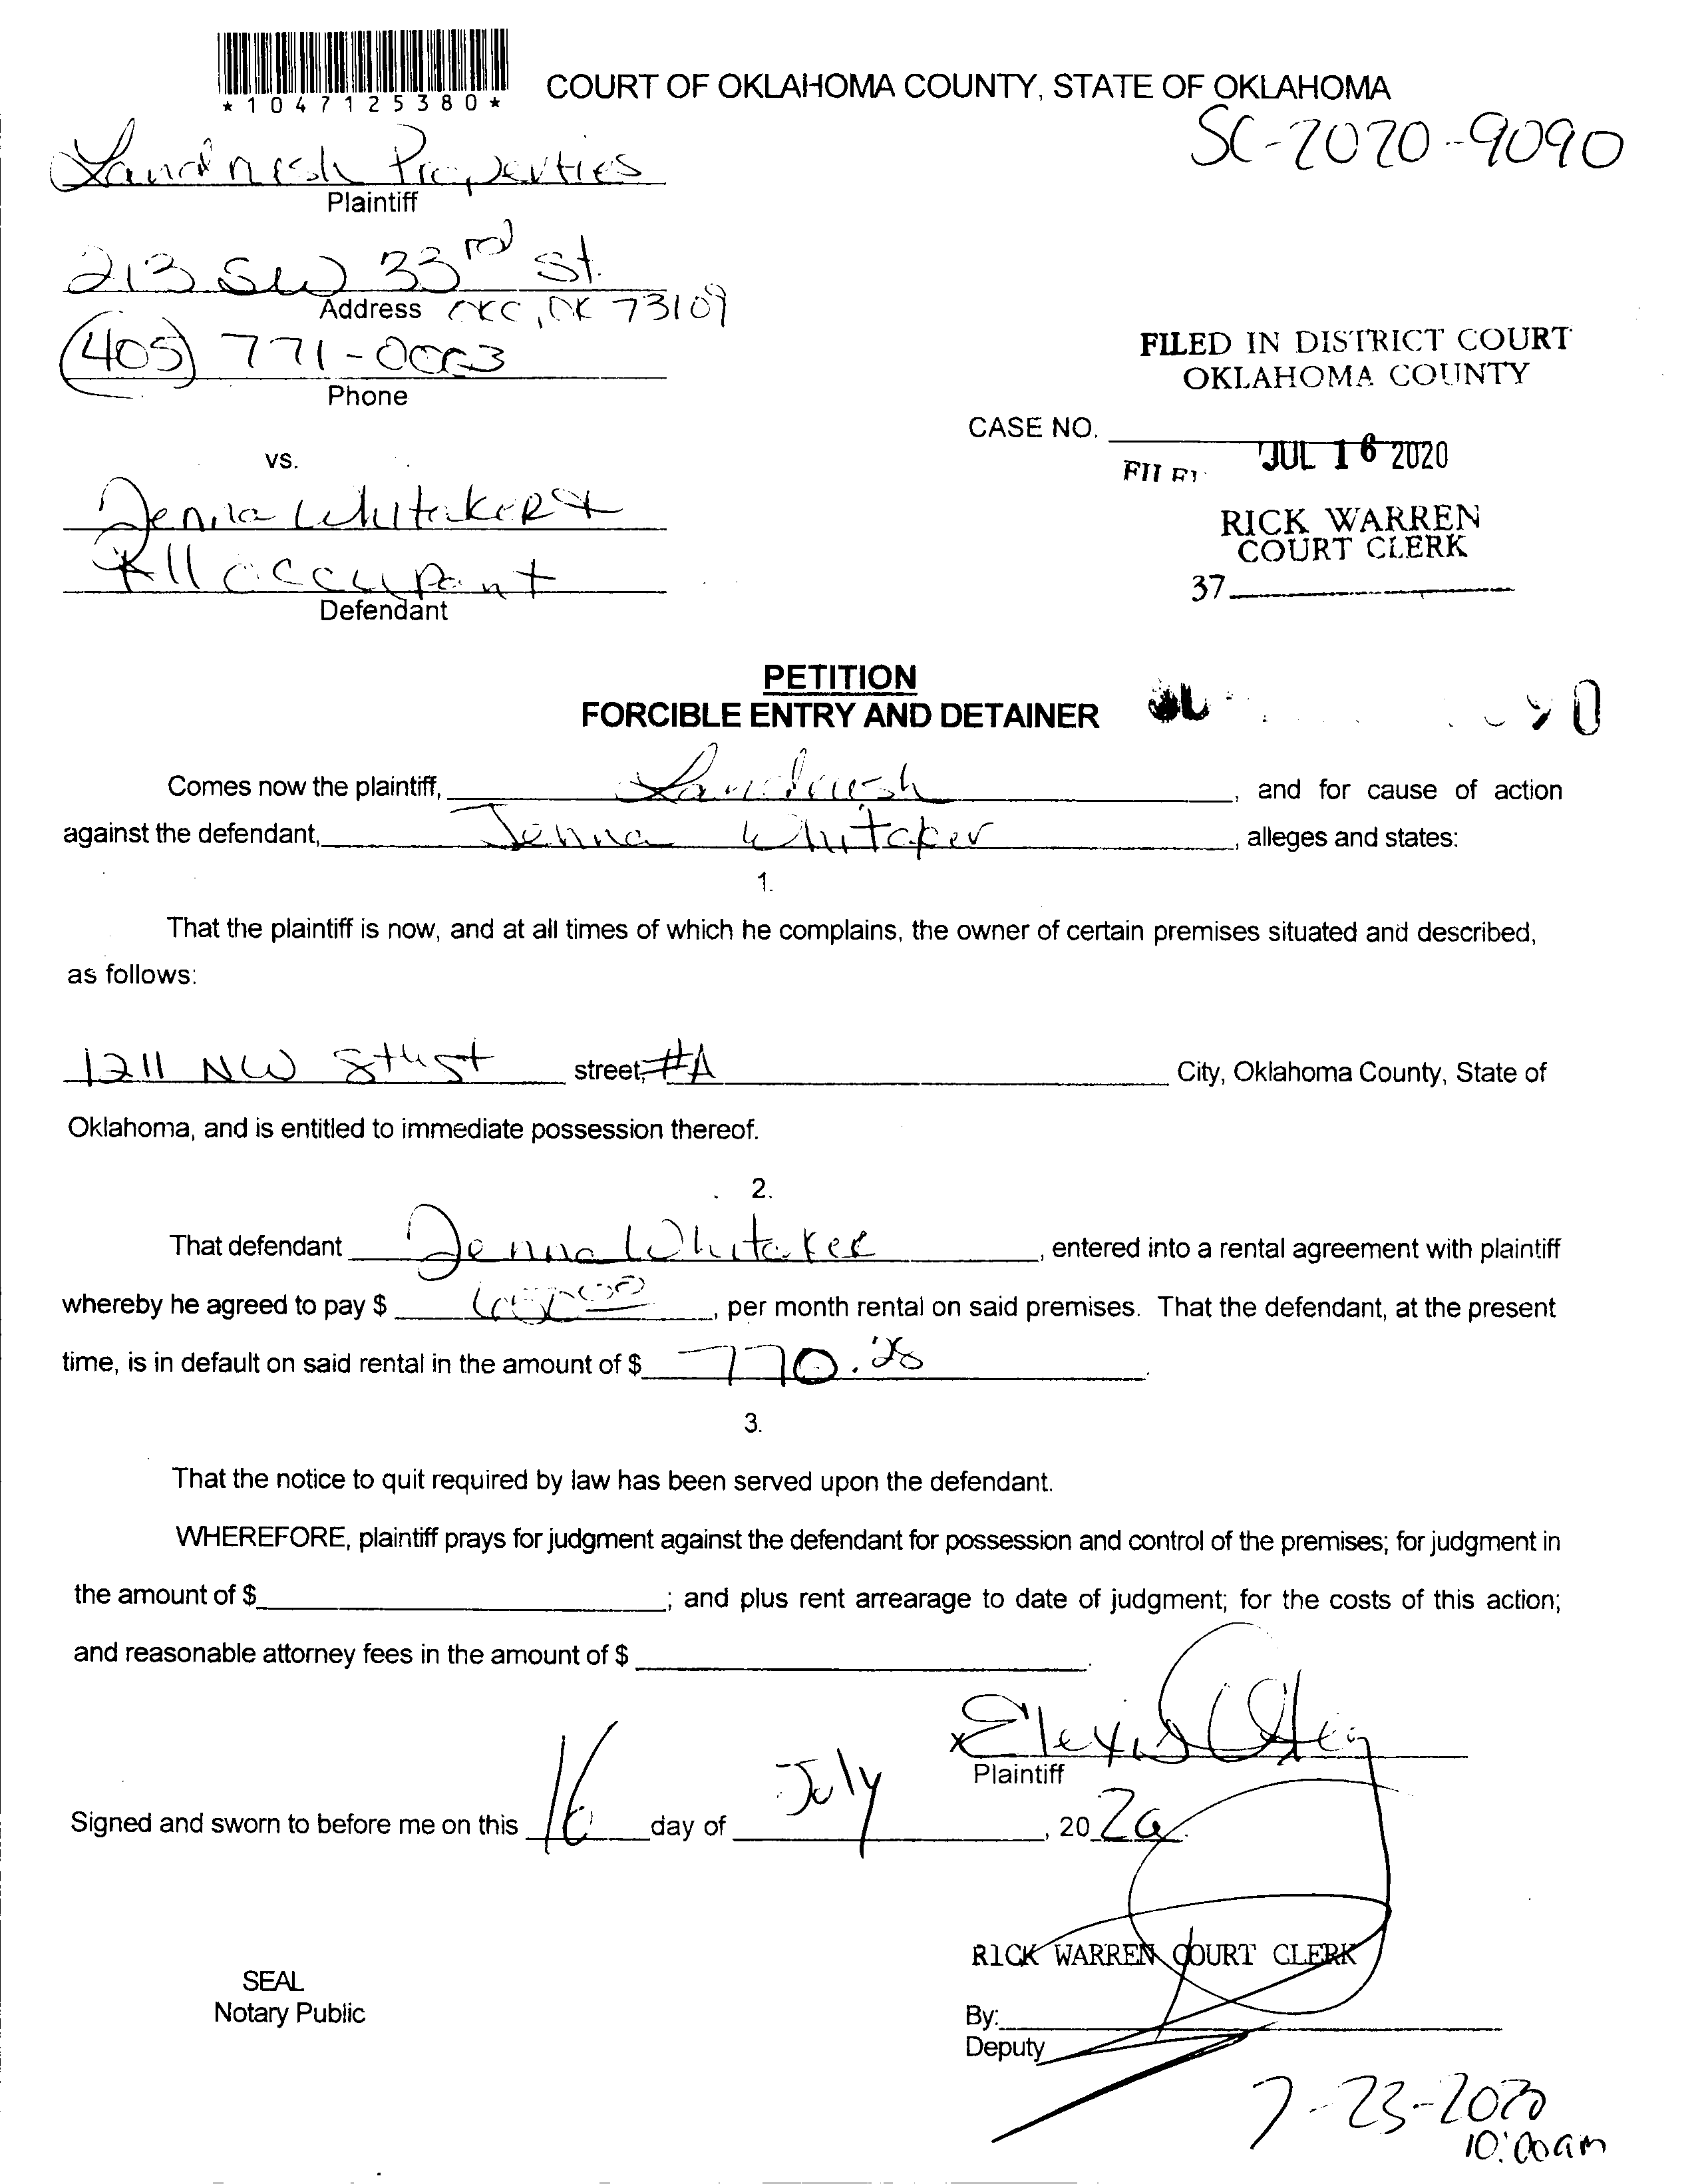 *1047125380*
COURT OF OKLAHOMA COUNTY, STATE OF OKLAHOMA
SC-2020-9090
Properties
Plaintiff
213 SW 33rd St.
Address OKC, OK 73109
(405) 771-0063
Phone
FILED IN DISTRICT COURT
OKLAHOMA COUNTY
CASE NO.
JUL 16 2020
vs.
Jenna Whitaker &
RICK WARREN
COURT CLERK
All Occupant
37
Defendant
PETITION
FORCIBLE ENTRY AND DETAINER
Comes now the plaintiff, Landrush, and for cause of action
against the defendant, Jenna Whitaker, alleges and states:
1.
That the plaintiff is now, and at all times of which he complains, the owner of certain premises situated and described,
as follows:
1211 NW 8th st street, #A City, Oklahoma County, State of
Oklahoma, and is entitled to immediate possession thereof.
2.
That defendant Jenna Whitaker, entered into a rental agreement with plaintiff
whereby he agreed to pay $, per month rental on said premises. That the defendant, at the present
time, is in default on said rental in the amount of $ 770.
3.
That the notice to quit required by law has been served upon the defendant.
WHEREFORE, plaintiff prays for judgment against the defendant for possession and control of the premises; for judgment in
the amount of $; and plus rent arrearage to date of judgment; for the costs of this action;
and reasonable attorney fees in the amount of $.
x Elexis
Plaintiff
Signed and sworn to before me on this 16 day of July, 2020.
RICK WARREN COURT CLERK
SEAL
Notary Public
By:
Deputy
7-23-2020
10:00am